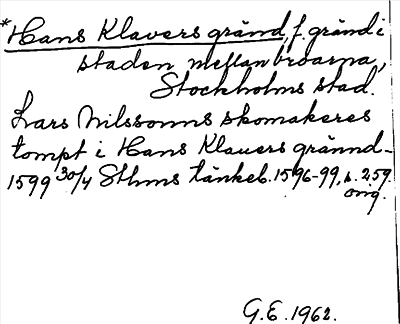 *Hans Klavers gränd, f. gränd i
staden mellan broarna,
Stockholms stad.
Lars Nilssonns skomakeres
tompt i Hans Klauers grännd -
1599 30/4 Sthms tänkeb. 1596-99, s. 259.
orig.
G.E. 1962.